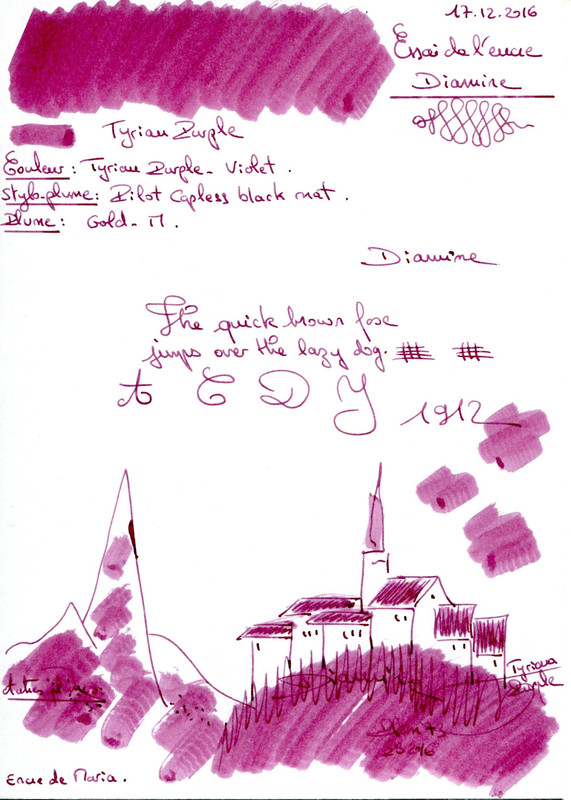 17.12.2016
Essai de l'encre
Diamine
Tyrian Purple
Couleur: Tyrian Purple - Violet.
Stylo-plume: Pilot Capless black mat.
Plume: Gold - M.
Diamine
The quick brown fose
jumps over the lazy dog.
A C D Y
1912
Diamine
Tyrian
Purple
2016
Encre de Maria.